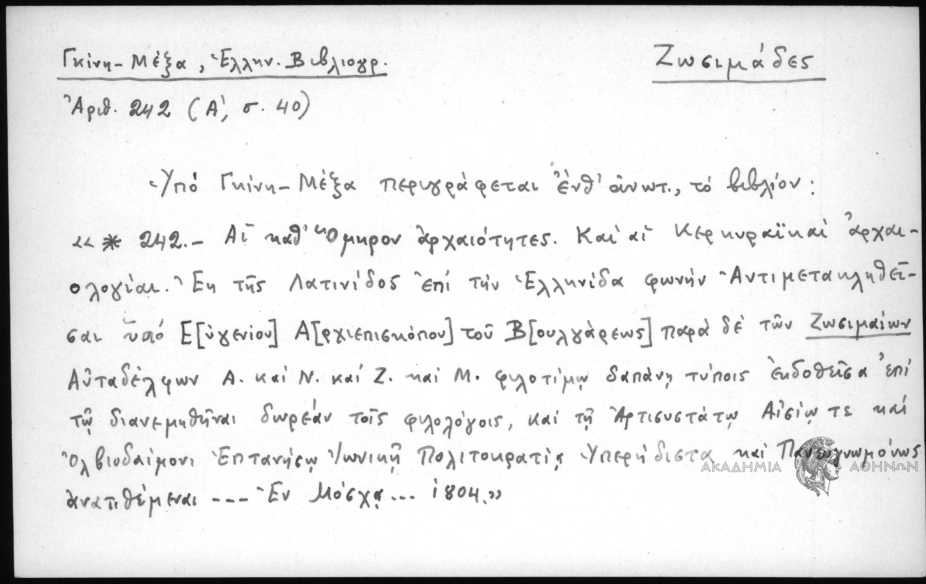 Γκίνη-Μέξα, Ἑλλην. Βιβλιογρ.
Ζωσιμάδες
Ἀριθ. 242 (Α΄, σ. 40)
Ὑπό Γκίνη-Μέξα περιγράφεται ἔνθ' ἀνωτ., τό βιβλίον:
«* 242.- Αἱ καθ' Ὅμηρον ἀρχαιότητες. Καί αἱ Κερκυραϊκαί ἀρχαι-
ολογίαι. Ἐκ τῆς Λατινίδος ἐπί τήν Ἑλληνίδα φωνήν Ἀντιμετακληθεῖ-
σαι ὑπό Ε[ὐγενίου] Α[ρχιεπισκόπου] τοῦ Β[ουλγάρεως] παρά δέ τῶν Ζωσιμαίων
Αὐταδέλφων Α. καί Ν. καί Ζ. καί Μ. φιλοτίμῳ δαπάνῃ τύποις ἐκδοθεῖσα ἐπί
τῷ διανεμηθῆναι δωρεάν τοῖς φιλολόγοις, καί τῇ Ἀρτισυστάτῳ Αἰσίῳ τε καί
Ὀλβιοδαίμονι Ἑπτανήσῳ Ἰωνικῇ Πολιτοκρατίᾳ Ὑπερήδιστα καί Πανευγνωμόνως
ἀνατιθέμεναι --- Ἐν Μόσχᾳ... 1804.»
ΑΚΑΔΗΜΙΑ ΑΘΗΝΩΝ